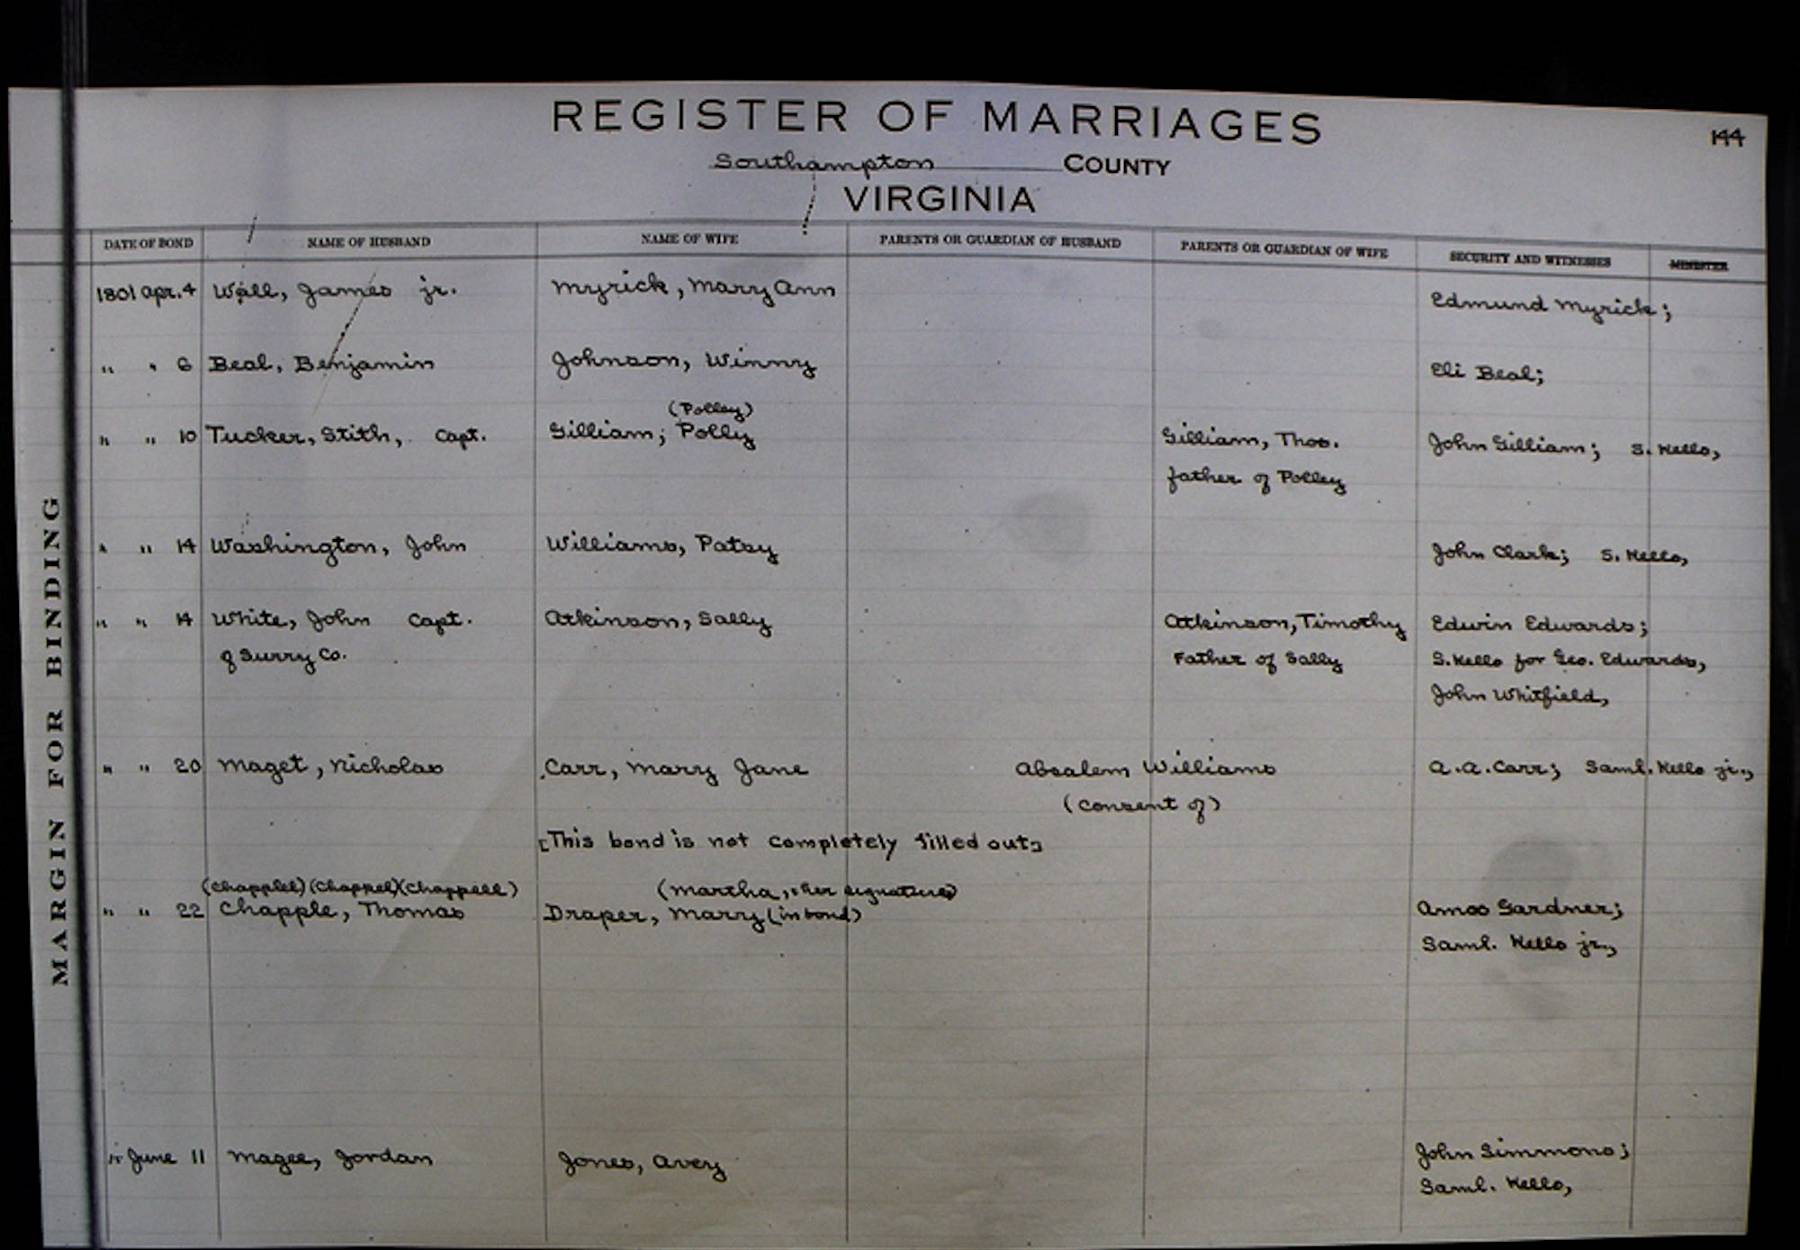 REGISTER OF MARRIAGES
144
Southampton COUNTY
VIRGINIA
DATE OF BOND NAME OF HUSBAND NAME OF WIFE PARENTS OR GUARDIAN OF HUSBAND PARENTS OR GUARDIAN OF WIFE SECURITY AND WITNESSES MINISTER
1801 Apr. 4 Wall, James jr. Myrick, Mary Ann Edmund Myrick;
" " 6 Beal, Benjamin Johnson, Winny Eli Beal;
(Polley)
" " 10 Tucker, Stith, Capt. Gilliam; Polly Gilliam, Thos. John Gilliam; S. Kello,
father of Polley
" " 14 Washington, John Williams, Patsy John Clark; S. Kello,
" " 14 White, John Capt. Atkinson, Sally Atkinson, Timothy Edwin Edwards;
of Surry Co. Father of Sally S. Kello for Geo. Edwards,
John Whitfield,
" " 20 Maget, Nicholas Carr, Marry Jane Absalem Williams A. A. Carr; Saml. Kello jr.,
(consent of)
[This bond is not completely filled out]
(Chapplel) (Chappel) (Chappell) (Martha, her signature)
" " 22 Chapple, Thomas Draper, Marry (in bond) Amos Gardner;
Saml. Kello jr.,
" June 11 Magee, Jordan Jones, Avery John Simmons;
Saml. Kello,
MARGIN FOR BINDING